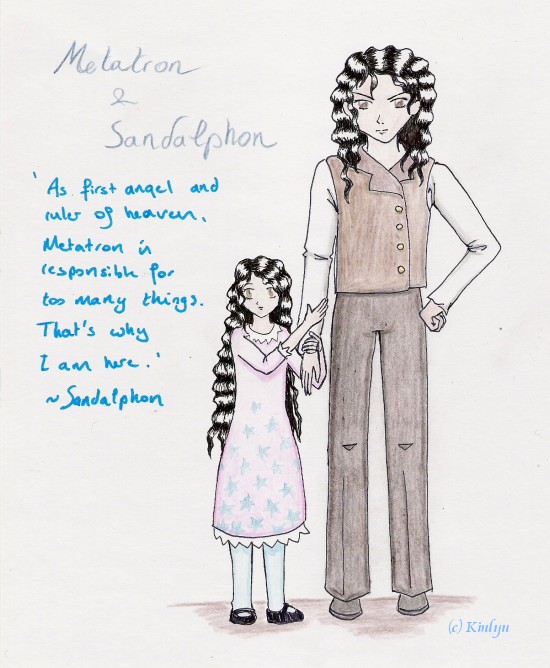 Metatron
&
Sandalphon
'As first angel and
ruler of heaven,
Metatron is
responsible for
too many things.
That's why
I am here.'
~Sandalphon
(c) Kinlyu